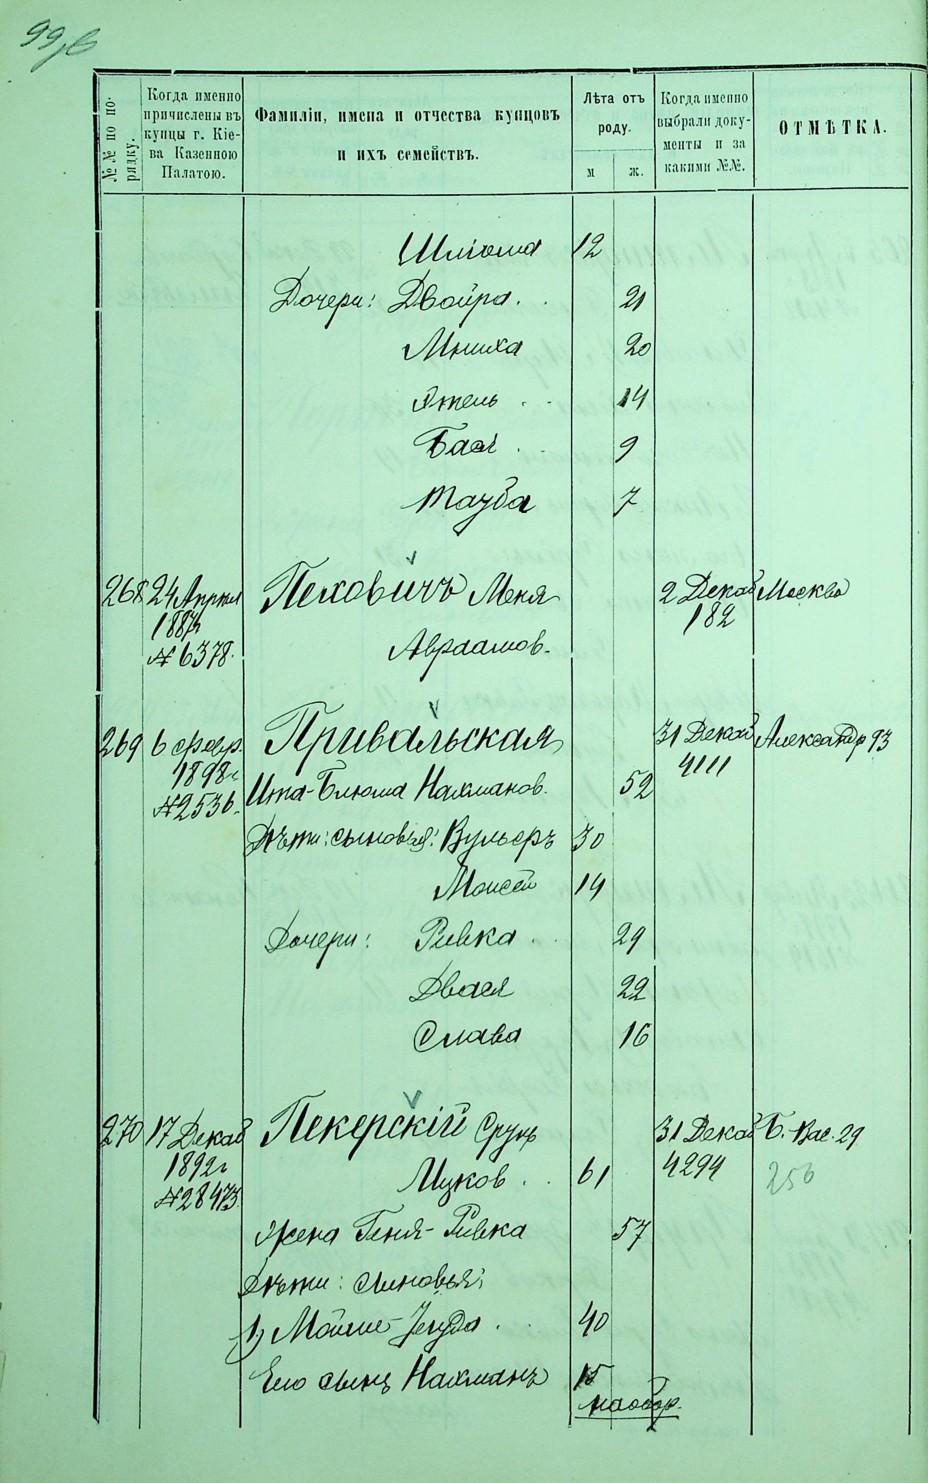 99 в
№№ по по-
рядку.
Когда именно
причислены въ
купцы г. Кіе-
ва Казенною
Палатою.
Фамиліи, имена и отчества купцовъ
и ихъ семействъ.
Лѣта отъ
роду.
м ж.
Когда именно
выбрали доку-
менты и за
какими №№.
ОТМѢТКА.
Шліома 12
Дочери: Двойра 21
Мниха 20
Этель 14
Бася 9
Тауба 7
268 24 Апрѣл Пеховичъ Меня 2 Декаб Москва
188 182
№ 6378. Авраамов.
269 6 Февр. Привальская 31 Декаб Александр 93
1898 г 4111
№ 2536. Ита-Блюма Нахманов. 52
Дѣти: сыновья: Вульфъ 30
Моисей 14
Дочери: Ривка 29
Двася 22
Слава 16
270 17 Декаб Пекерскій Сруль 31 Декаб Б.-Вас. 29
1892 г 4294
№ 28473. Ицков 61 256
Жена Геня-Ривка 57
Дѣти: сыновья:
1) Мойше-Іегуда 40
Его сынъ Нахманъ 15
наобор.